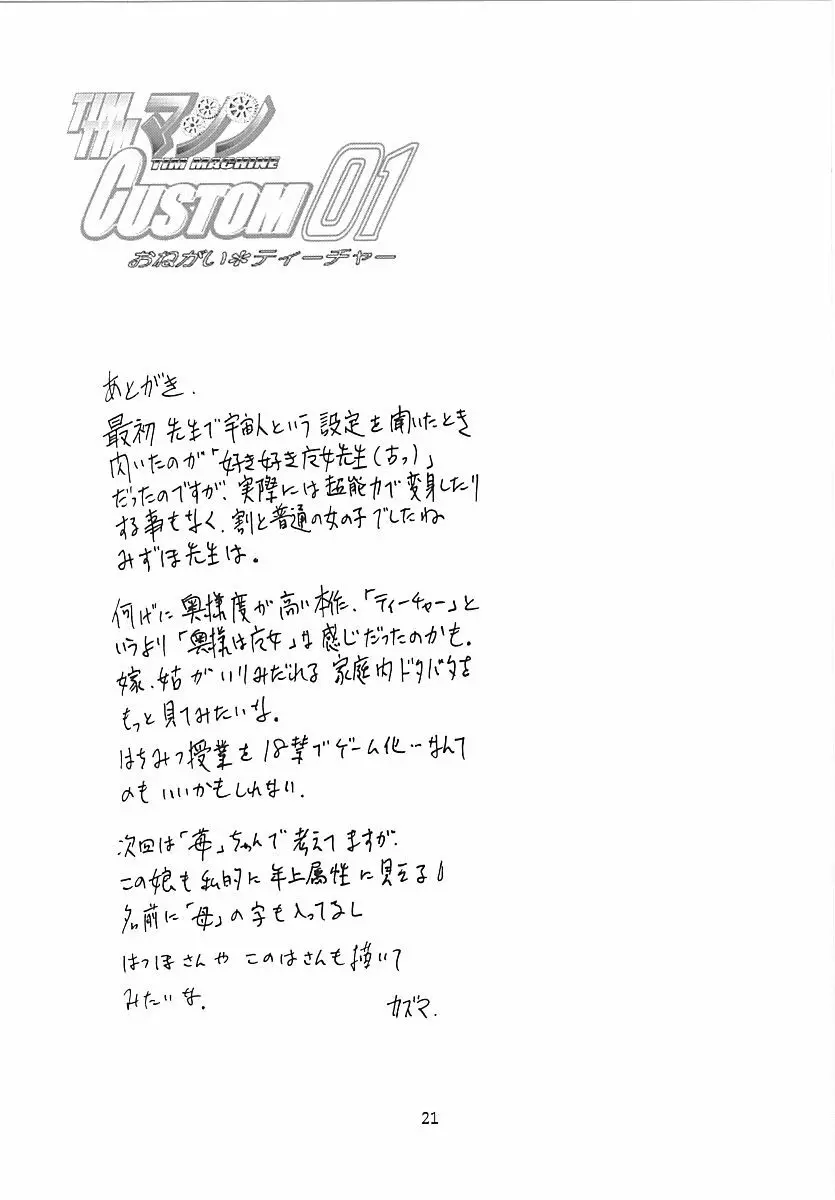 TIM
TIM マシン
TIM MACHINE
CUSTOM 01
おねがい*ティーチャー
あとがき.
最初 先生で宇宙人という設定を聞いたとき
肉いたのが「好き好き魔女先生(古っ)」
だったのですが、実際には超能力で変身したり
する事もなく、割と普通の女の子でしたね
みずほ先生は。
何げに奥様度が高い本作、「ティーチャー」と
いうより「奥様は魔女」な感じだったのかも。
嫁、姑がいりみだれる家庭内ドタバタを
もっと見てみたいな。
はちみつ授業を18禁でゲーム化…なんて
のもいいかもしれない.
次回は「苺」ちゃんで考えてますが、
この娘も私的に年上属性に見える
名前に「母」の字も入ってるし
はつほさんや このはさんも描いて
みたいな。
カズマ.
21